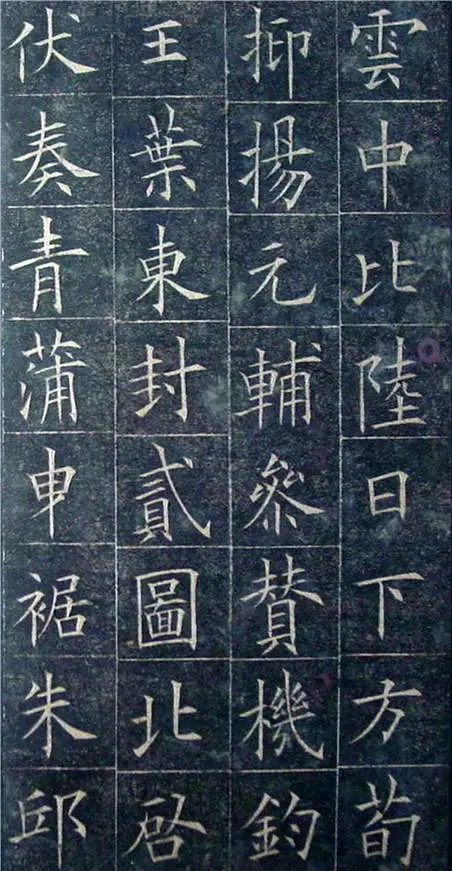 雲中比陸日下方荀
抑揚元輔叅賛機鈞
王葉東封貳圖北啓
伏奏青蒲申裾朱邸